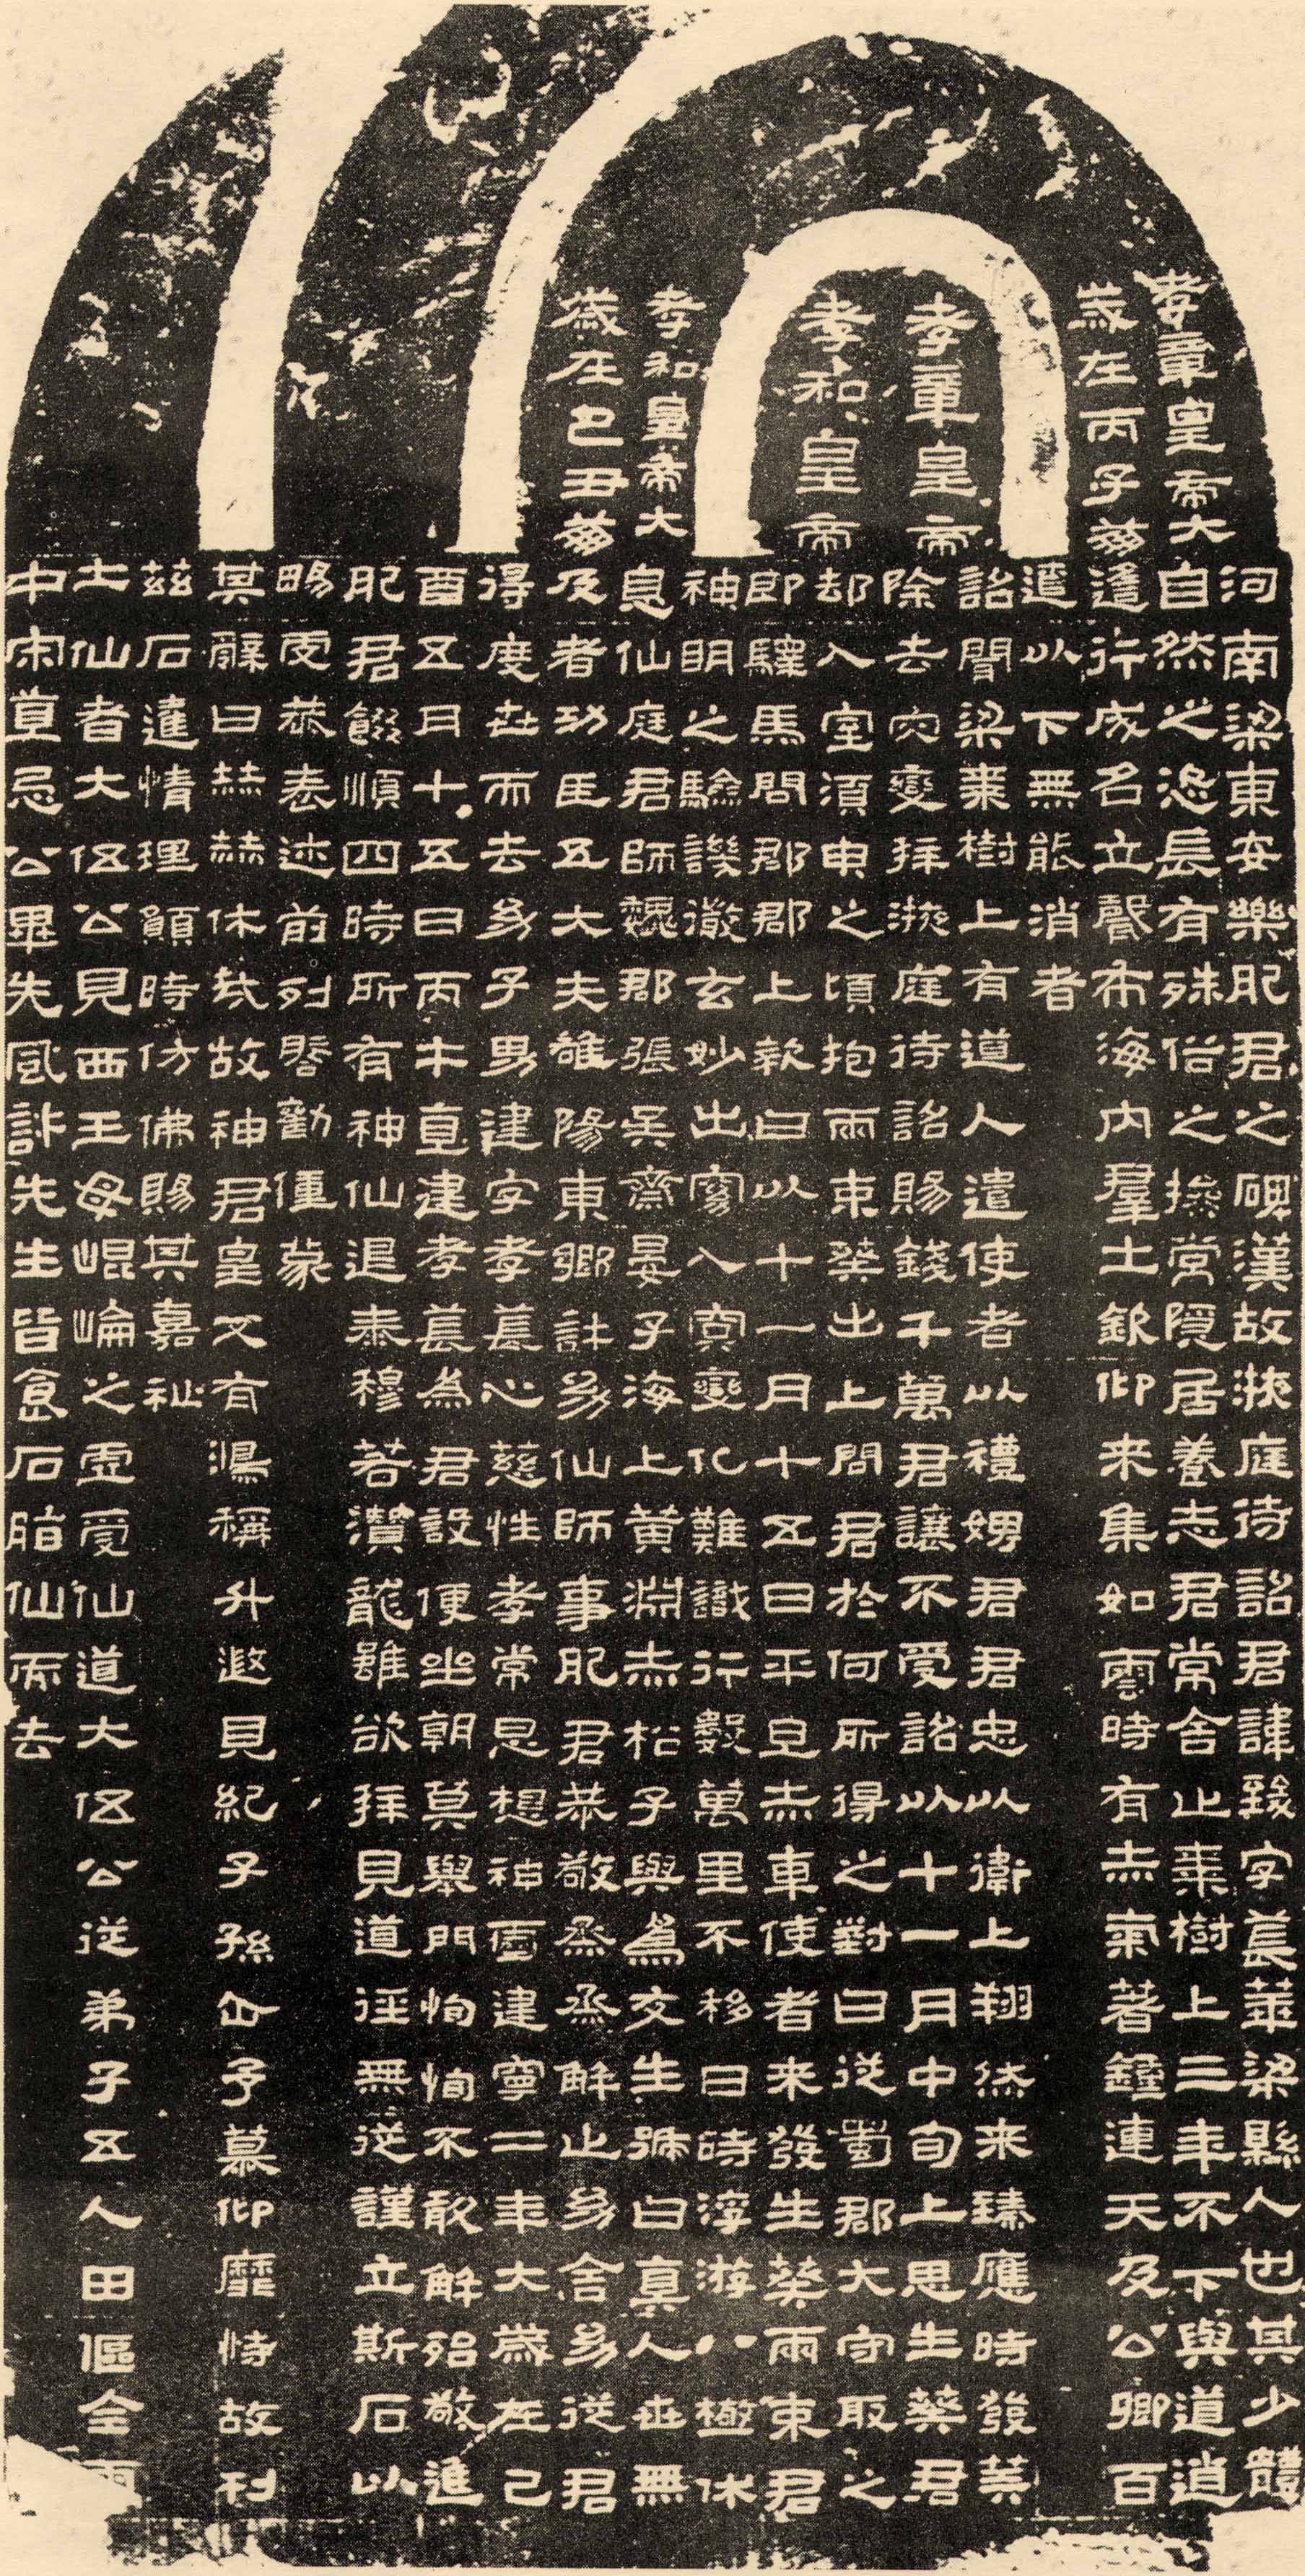 孝章皇帝
孝和皇帝
孝章皇帝大
歲在丙子崩
孝和皇帝大
歲在己丑崩
河南梁東安樂肥君之碑漢故掖庭待詔君諱致字萇華梁縣人也其少體
自然之恣長有殊俗之操常隱居養志君常舍止棗樹上三年不下與道逍
遙行成名立聲布海內羣士欽仰来集如雲時有赤氣著鐘連天及公卿百
遼以下無能消者
詔聞梁棗樹上有道人遣使者以禮娉君君忠以衛上翔然来臻應時發筭
除去灾變拜掖庭待詔賜錢千萬君讓不受詔以十一月中旬上思生葵君
却入室須臾之頃抱兩束葵出上問君於何所得之對曰從蜀郡大守取之
即驛馬問郡郡上報白以十一月十五日平旦赤車使者来發生葵兩束君
神明之驗譏徹玄妙出窈入冥變化難識行數萬里不移日時浮游八極休
息仙庭君師魏郡張吳齋晏子海上黃淵赤松子與為友生號曰真人世無
及者功臣五大夫雒陽東鄉許幼仙師事肥君恭敬烝烝解止幼舍幼從君
得度世而去幼子男建字孝萇心慈性孝常思想神靈建寧二年大歲在己
酉五月十五日丙午直建孝萇為君設便坐朝莫舉門恂恂不敢解殆敬進
肥君餟順四時所有神仙退泰穆若潛龍雖欲拜見道徑無從謹立斯石以
暘虔恭表述前列啓勸僮蒙
其辭曰赫赫休哉故神君皇又有鴻稱升遐見紀子孫企予慕仰靡恃故刊
兹石達情理願時仿佛賜其嘉祉
土仙者大伍公見西王母崐崘之虛受仙道大伍公從弟子五人田傴全雨
中宋直忌公畢先風許先生皆食石脂仙而去